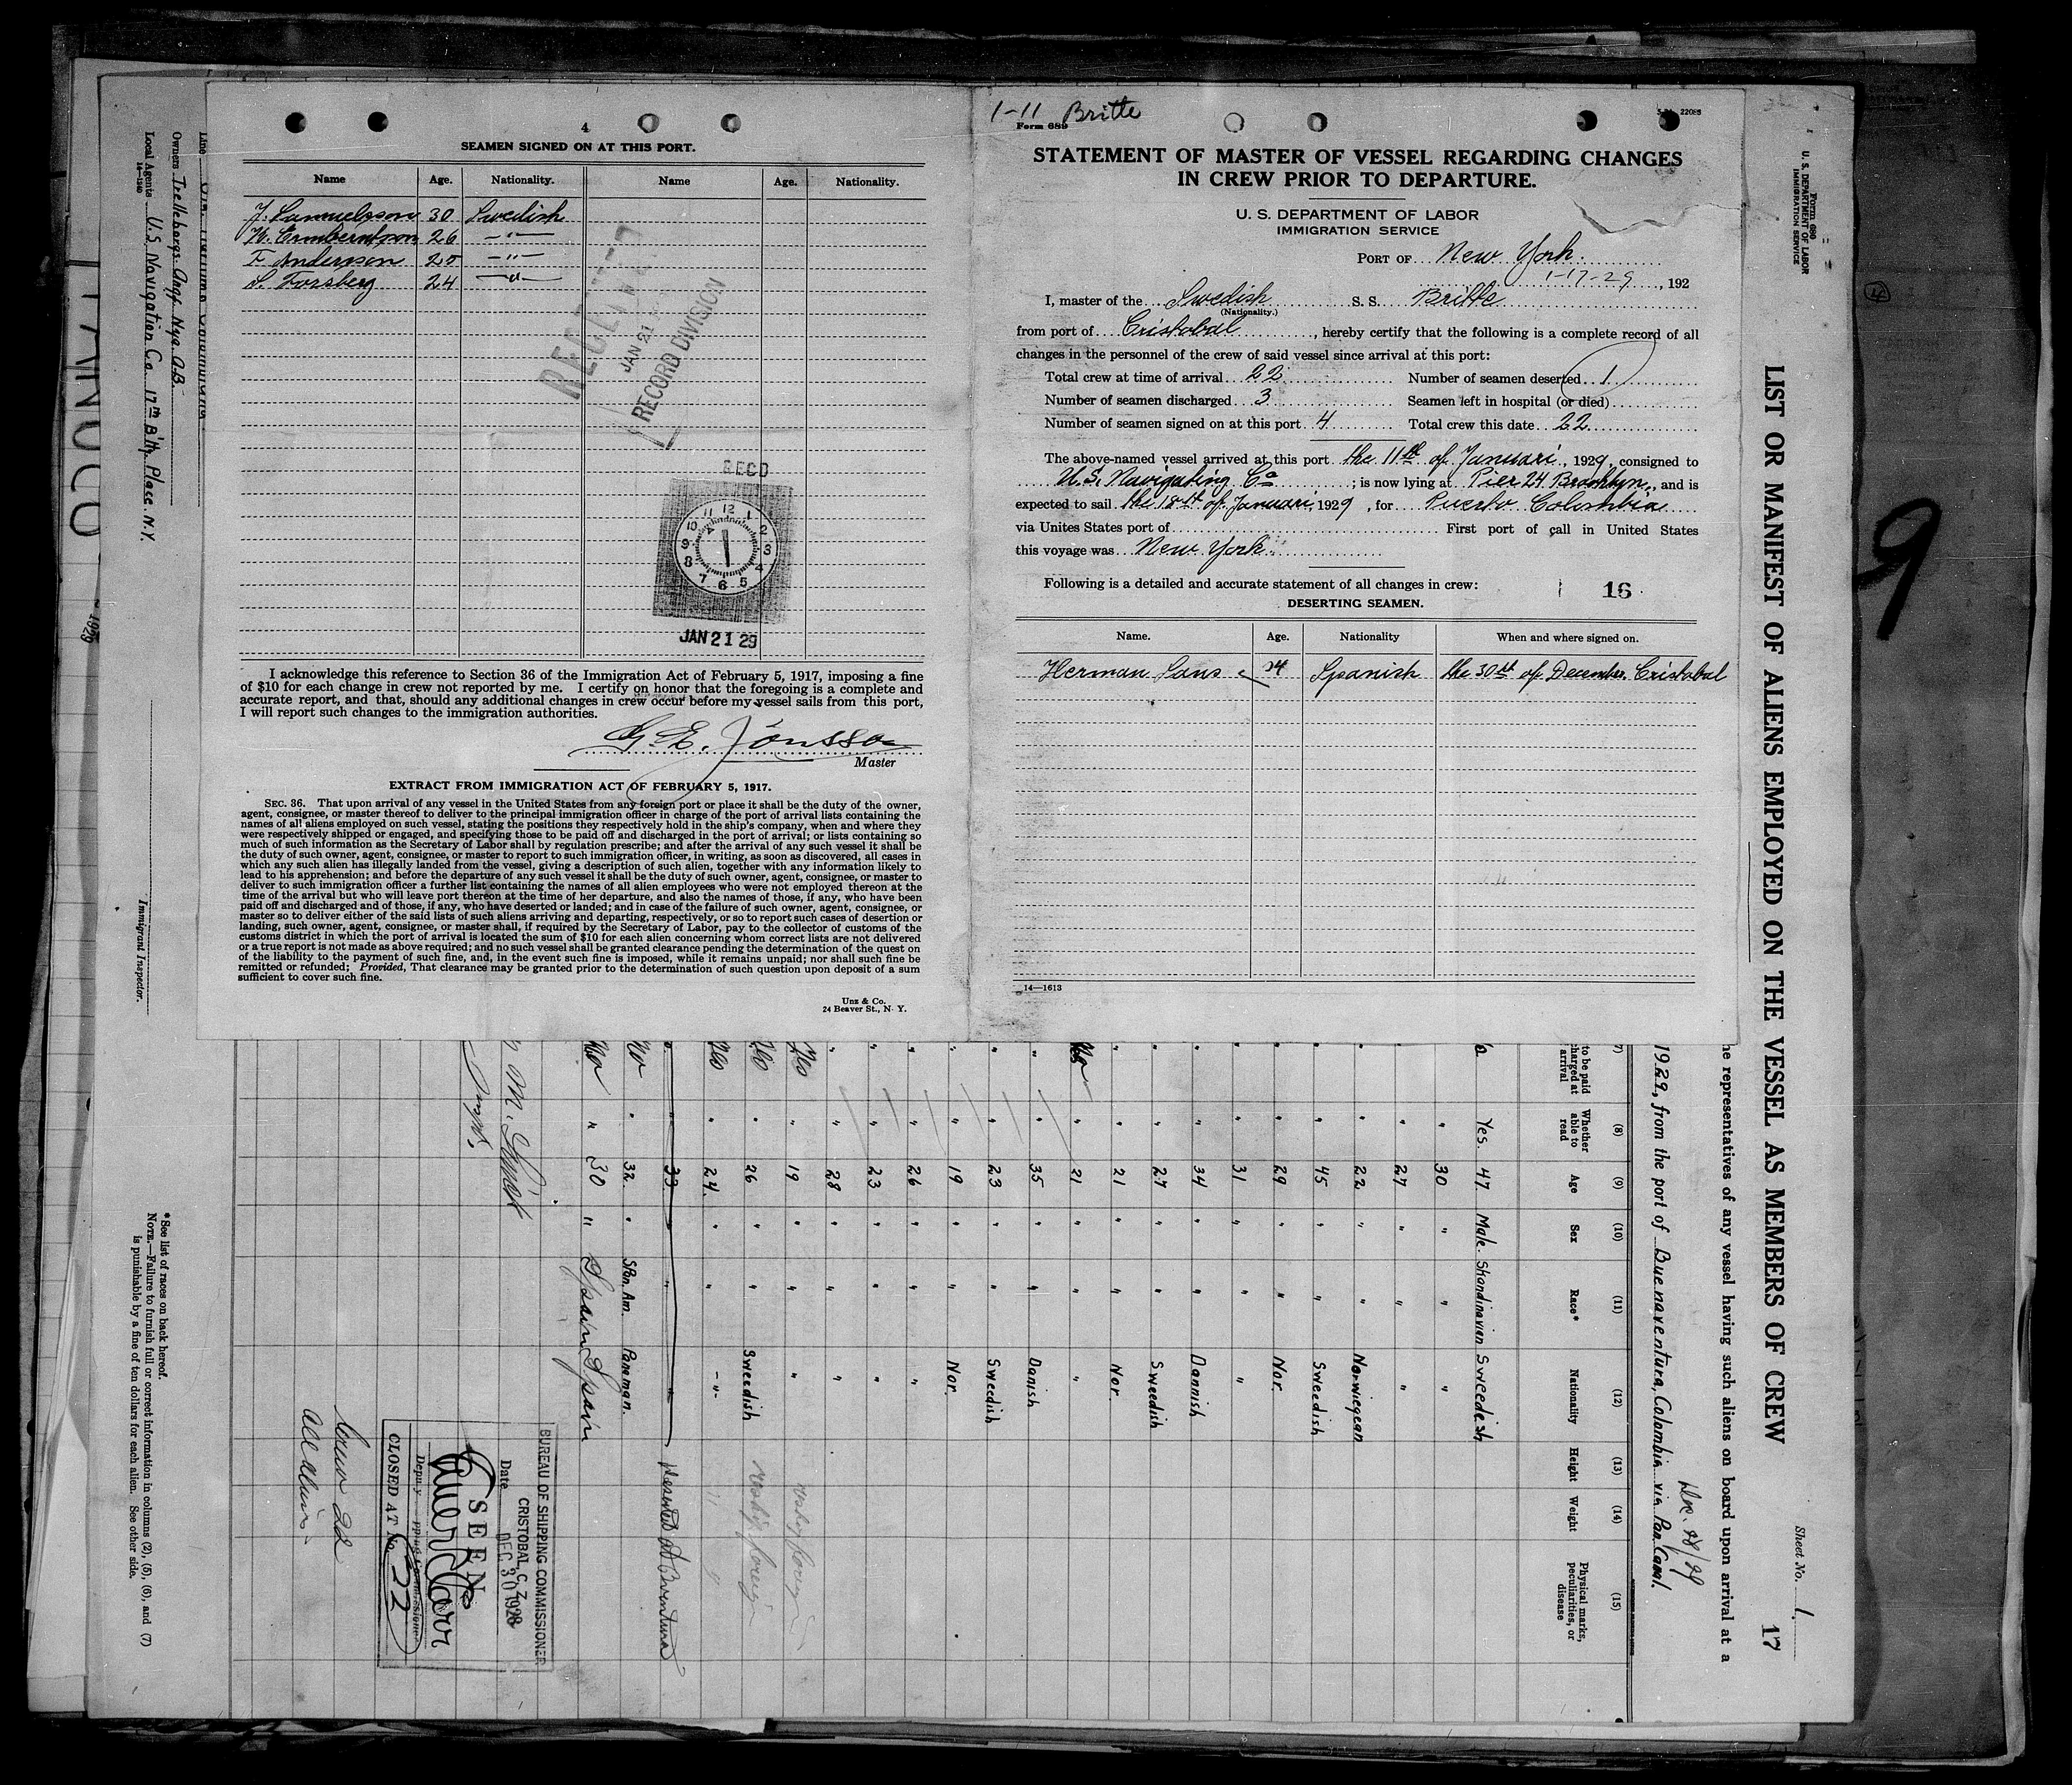 4
SEAMEN SIGNED ON AT THIS PORT.
Name Age. Nationality. Name Age. Nationality.
J. Samuelsson 30 Swedish
26 —"—
F. Andersson 25 —"—
S. Forsberg 24 —"—
RECEIVED
JAN 21
RECORD DIVISION
RECD
12 1 2 3 4 5 6 7 8 9 10 11
JAN 21 29
I acknowledge this reference to Section 36 of the Immigration Act of February 5, 1917, imposing a fine
of $10 for each change in crew not reported by me. I certify on honor that the foregoing is a complete and
accurate report, and that, should any additional changes in crew occur before my vessel sails from this port,
I will report such changes to the immigration authorities.
G. E. Jönsson
Master
EXTRACT FROM IMMIGRATION ACT OF FEBRUARY 5, 1917.
SEC. 36. That upon arrival of any vessel in the United States from any foreign port or place it shall be the duty of the owner,
agent, consignee, or master thereof to deliver to the principal immigration officer in charge of the port of arrival lists containing the
names of all aliens employed on such vessel, stating the positions they respectively hold in the ship's company, when and where they
were respectively shipped or engaged, and specifying those to be paid off and discharged in the port of arrival; or lists containing so
much of such information as the Secretary of Labor shall by regulation prescribe; and after the arrival of any such vessel it shall be
the duty of such owner, agent, consignee, or master to report to such immigration officer, in writing, as soon as discovered, all cases in
which any such alien has illegally landed from the vessel, giving a description of such alien, together with any information likely to
lead to his apprehension; and before the departure of any such vessel it shall be the duty of such owner, agent, consignee, or master to
deliver to such immigration officer a further list containing the names of all alien employees who were not employed thereon at the
time of the arrival but who will leave port thereon at the time of her departure, and also the names of those, if any, who have been
paid off and discharged and of those, if any, who have deserted or landed; and in case of the failure of such owner, agent, consignee, or
master so to deliver either of the said lists of such aliens arriving and departing, respectively, or so to report such cases of desertion or
landing, such owner, agent, consignee, or master shall, if required by the Secretary of Labor, pay to the collector of customs of the
customs district in which the port of arrival is located the sum of $10 for each alien concerning whom correct lists are not delivered
or a true report is not made as above required; and no such vessel shall be granted clearance pending the determination of the quest on
of the liability to the payment of such fine, and, in the event such fine is imposed, while it remains unpaid; nor shall such fine be
remitted or refunded; Provided, That clearance may be granted prior to the determination of such question upon deposit of a sum
sufficient to cover such fine.
Unz & Co.
24 Beaver St., N. Y.
1-11 Britte
Form 689
22085
STATEMENT OF MASTER OF VESSEL REGARDING CHANGES
IN CREW PRIOR TO DEPARTURE.
U. S. DEPARTMENT OF LABOR
IMMIGRATION SERVICE
PORT OF New York.
1-17-29, 192
I, master of the Swedish S. S. Britte
(Nationality.)
from port of Cristobal, hereby certify that the following is a complete record of all
changes in the personnel of the crew of said vessel since arrival at this port:
Total crew at time of arrival 22 Number of seamen deserted 1
Number of seamen discharged 3 Seamen left in hospital (or died)
Number of seamen signed on at this port 4 Total crew this date 22
The above-named vessel arrived at this port the 11th of Januari, 1929, consigned to
U.S. Navigating Co; is now lying at Pier 24 Brooklyn, and is
expected to sail the 18th of Januari, 1929, for Puerto Colombia
via Unites States port of First port of call in United States
this voyage was New York.
Following is a detailed and accurate statement of all changes in crew:
16
DESERTING SEAMEN.
Name. Age. Nationality When and where signed on.
Herman Sans 24 Spanish the 30th of December Cristobal
14—1613
Form 680
U. S. DEPARTMENT OF LABOR
IMMIGRATION SERVICE
LIST OR MANIFEST OF ALIENS EMPLOYED ON THE VESSEL AS MEMBERS OF CREW
Sheet No. 1.
17
he representatives of any vessel having such aliens on board upon arrival at a
Dec. 28/29
1929, from the port of Buenaventura, Colombia via Pan. Canal.
(8) (9) (10) (11) (12) (13) (14) (15)
to be paid
charged at
arrival
Whether
able to
read
Age
Sex
Race*
Nationality
Height
Weight
Physical marks,
peculiarities, or
disease
Yes. 47 Male. Skandinavian Sweedesh
" 30 " " "
" 27 " " "
" 22 " " Norwegean
" 45 " " Sweedish
" 29 " " Nor.
" 31 " " "
" 34 " " Dannish
" 27 " " Sweedish
" 21 " " Nor.
No " 21 " " "
" 35 " " Danish
" 23 " " Sweedish
" 19 " " Nor.
" 26 " " "
" 23 " " "
" 28 " " "
No " 19 " " "
No " 26 " " Sweedish
No " 24. " " -"-
" 33 " " " Deserted at Bventura
No " 32. " Spn. Am. Paneman.
No " 30 " Spain Spain
BUREAU OF SHIPPING COMMISSIONER
CRISTOBAL, C. Z.
Date DEC 30 1928
SEEN
Deputy Shipping Commissioner
CLOSED AT No. 22
Crew 22
All aliens
*See list of races on back hereof.
NOTE.—Failure to furnish full or correct information in columns (2), (5), (6), and (7)
is punishable by a fine of ten dollars for each alien. See other side.
Line
Owners Trelleborgs Ångf. Nya A.B.
Local Agents U.S. Navigation Co. 17th B'ty. Place. N.Y.
14—1240
Immigrant Inspector.
1929
9
4